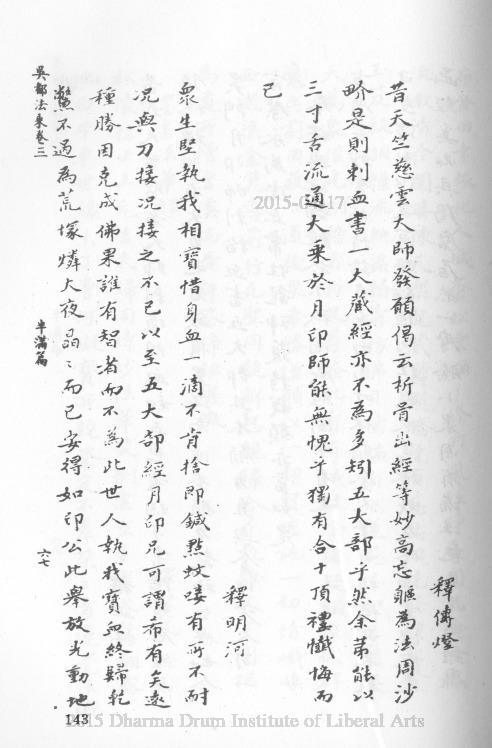 釋傳燈
昔天竺慈雲大師發願偈云析骨出經等妙高忘軀為法周沙
界是則刺血書一大藏經亦不為多矧五大部乎然余苐能以
三寸舌流通大乘於月印師能無愧乎獨有合十頂禮懺悔而
已
釋明河
眾生堅執我相寶惜身血一滴不肯捨即鍼㸃蚊嘍有所不耐
况與刀接况接之不已以至五大部經月印兄可謂希有矣遠
種勝因克成佛果誰有智者而不為此世人執我寶血終歸乾
鱉不過為荒塚燐火夜晶〻而已安得如印公此舉放光動地
吳都法乘卷三
半滿篇
六七
143
2015-04-17
2015 Dharma Drum Institute of Liberal Arts